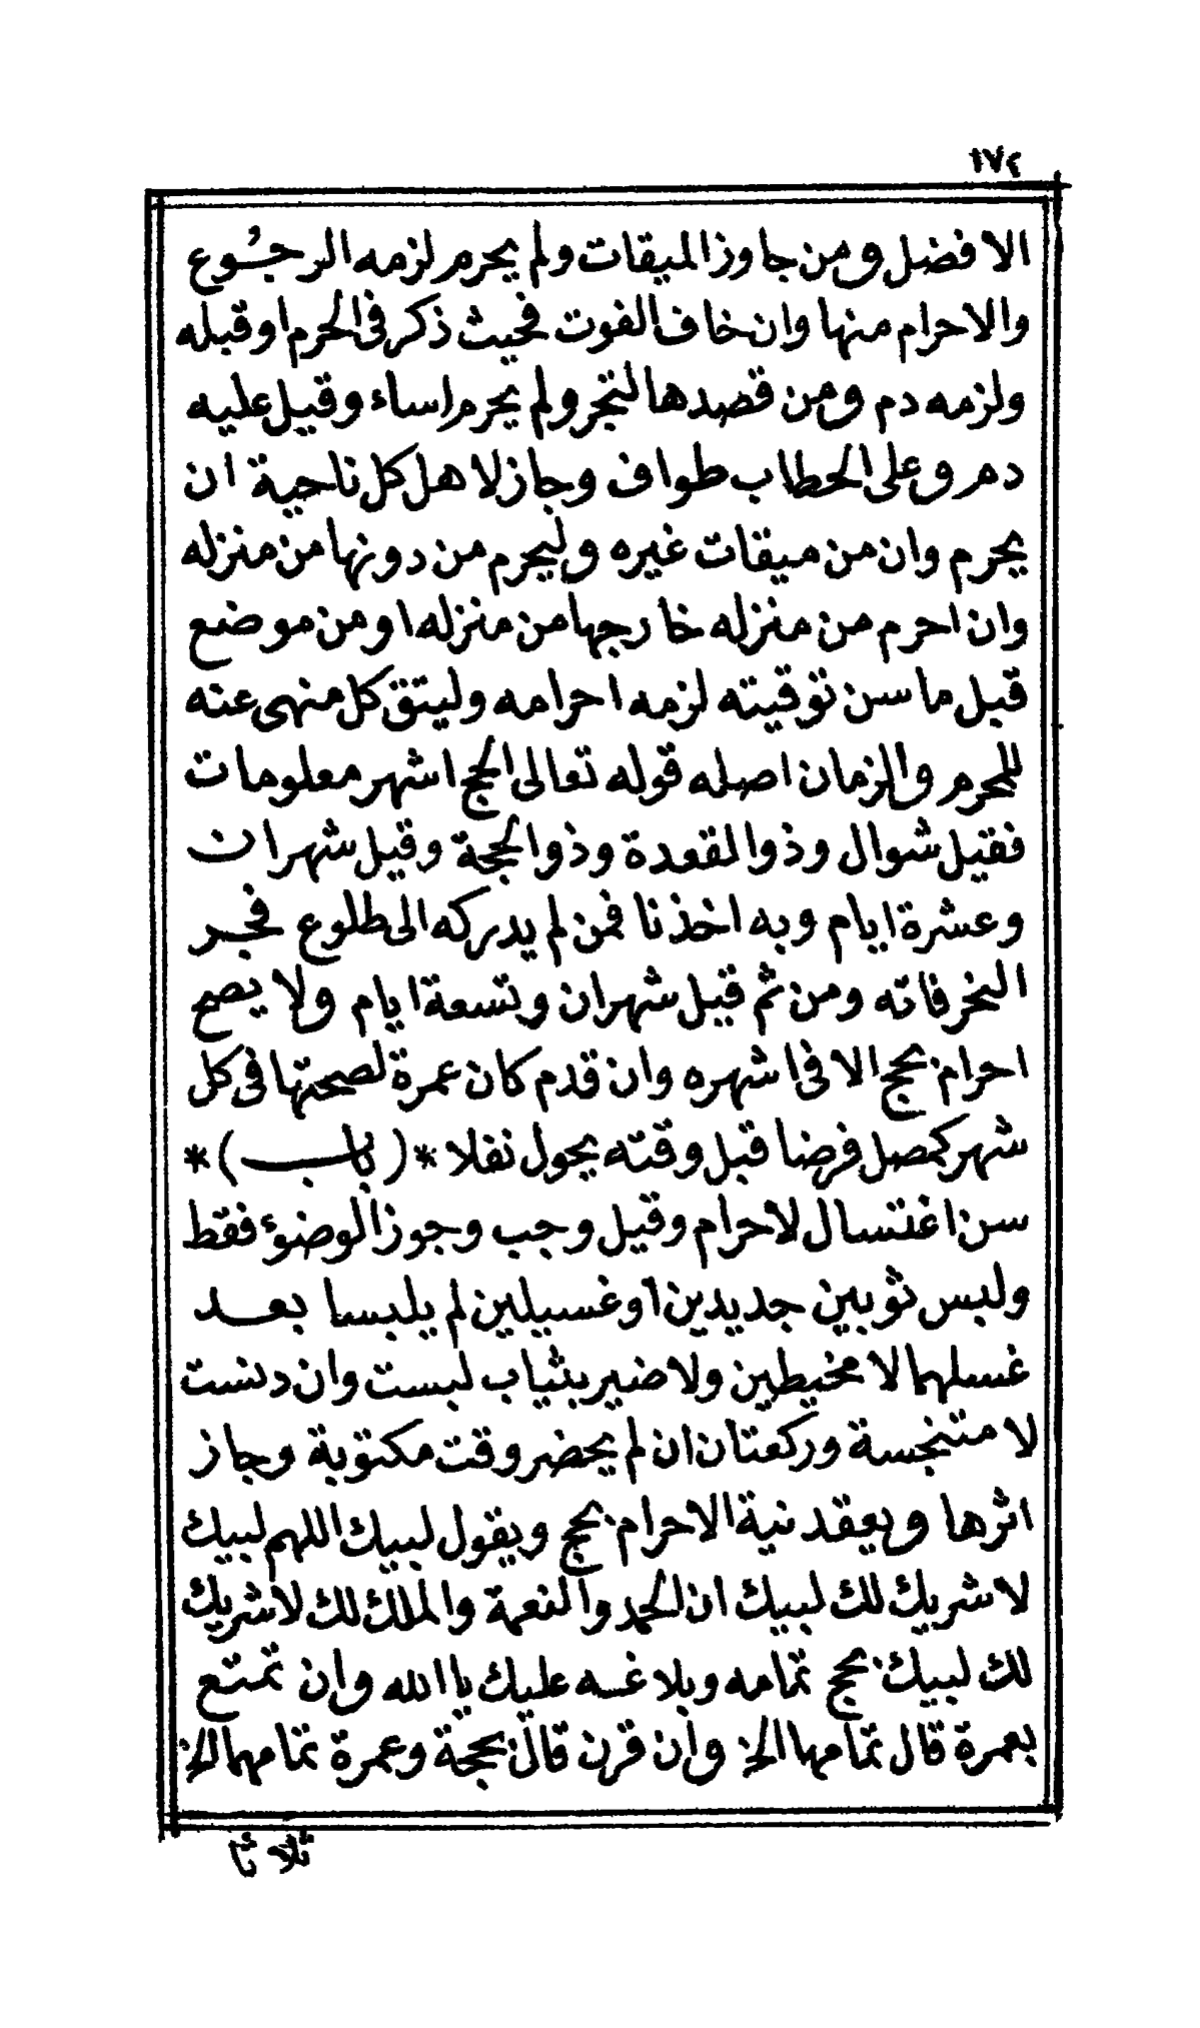 ١٧٤
الافضل ومن جاوز الميقات ولم يحرم لزمه الرجوع
والاحرام منها وان خاف الفوت فحيث ذكر فى الحرم او قبله
ولزمه دم ومن قصدها لتجر ولم يحرم اساء وقيل عليه
دم وعلى الحطاب طواف وجاز لاهل كل ناحية ان
يحرم وان من ميقات غيره وليحرم من دونها من منزله
وان احرم من منزله خارجها من منزله او من موضع
قبل ما سن توقيته لزمه احرامه وليتق كل منهى عنه
للمحرم والزمان اصله قوله تعالى الحج اشهر معلومات
فقيل شوال وذو القعدة وذو الحجة وقيل شهران
وعشرة ايام وبه اخذنا فمن لم يدركه الى طلوع فجر
النحر فاته ومن ثم قيل شهران وتسعة ايام ولا يصح
احرام بحج الا فى اشهره وان قدم كان عمرة لصحتها فى كل
شهر كمصل فرضا قبل وقته يحول نفلا * ( باب ) *
سن اغتسال لاحرام وقيل وجب وجوز الوضوء فقط
ولبس ثوبين جديدين او غسيلين لم يلبسا بعد
غسلهما لا مخيطين ولا ضير بثياب لبست وان دنست
لا متنجسة وركعتان ان لم يحضر وقت مكتوبة وجاز
اثرها ويعقد نية الاحرام بحج ويقول لبيك اللهم لبيك
لا شريك لك لبيك ان الحمد والنعمة والملك لك لا شريك
لك لبيك بحج تمامه وبلاغه عليك يا الله وان تمتع
بعمرة قال تمامها الخ وان قرن قال بحجة وعمرة تمامهما الخ
ثلاثا